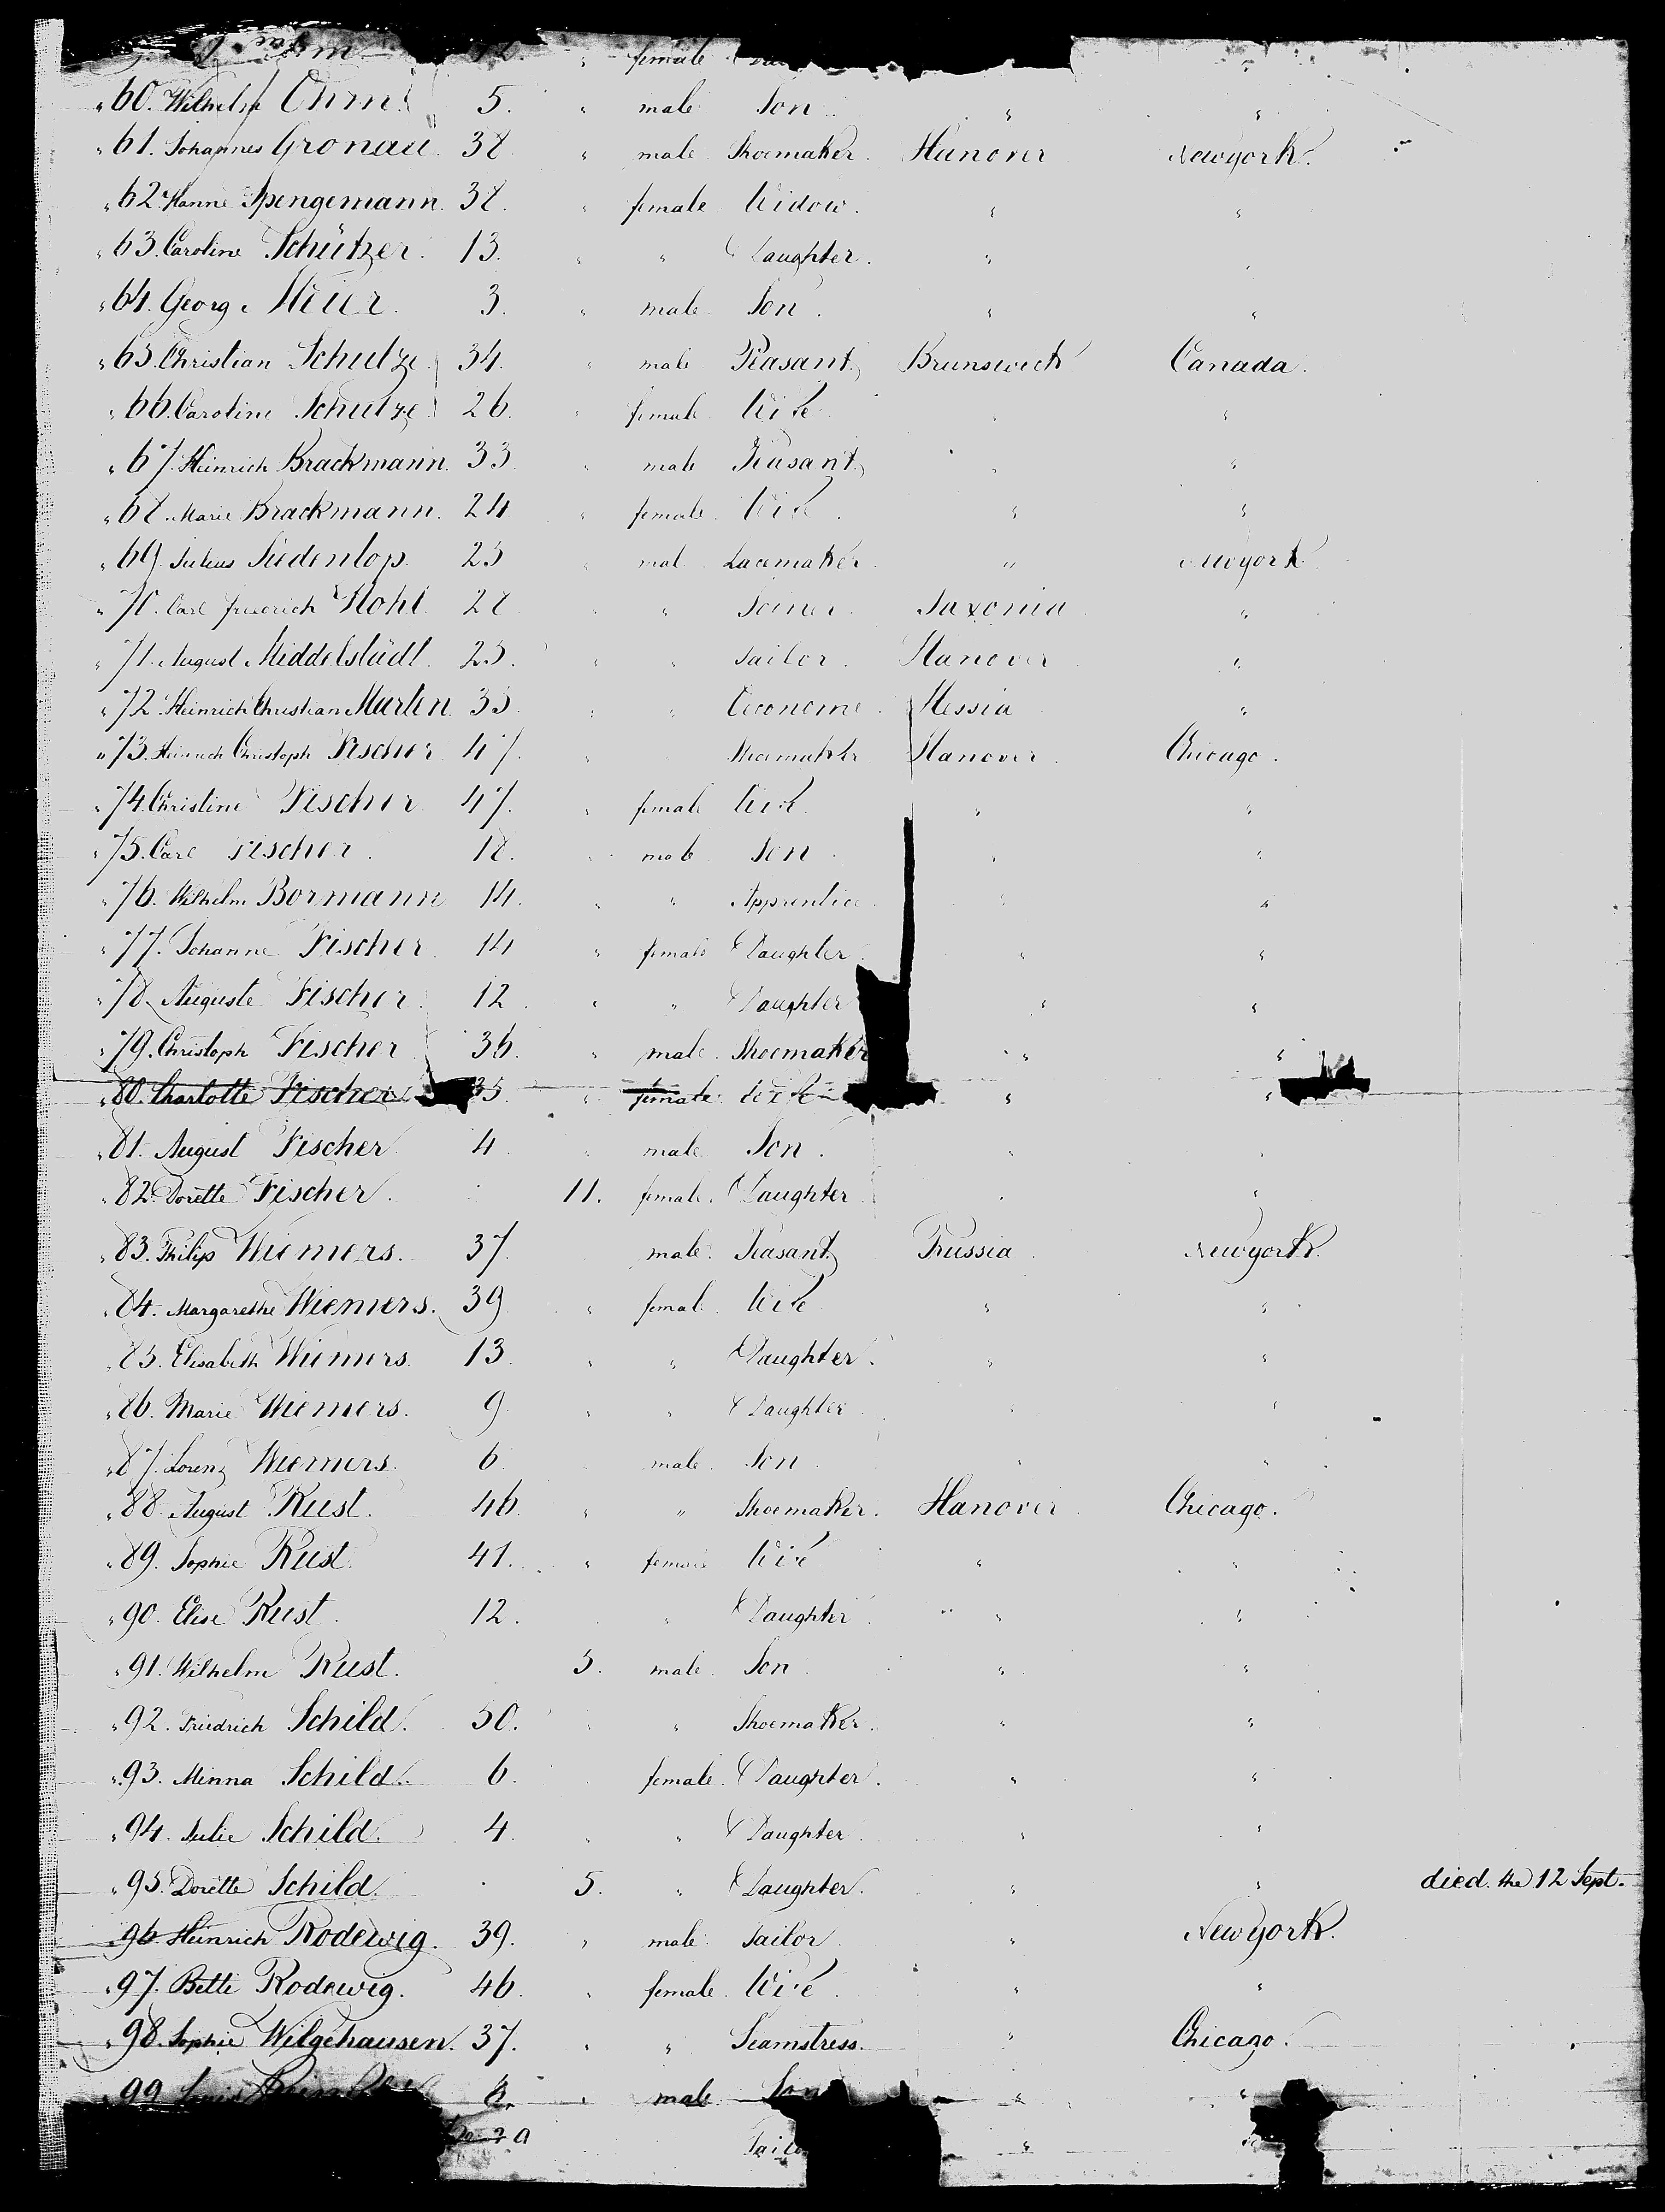 female
" 60. Wilhelm Ohm. 5. " male Son. " "
" 61. Johannes Gronau. 38. " male Shoemaker. Hanover Newyork.
" 62. Hanne Spengemann. 38. " female Widow. " "
" 63. Caroline Schützer. 13. " " Daughter. " "
" 64. Georg Meier. 3. " male Son. " "
" 65. Christian Schulze. 34. " male Peasant. Brunswick Canada.
" 66. Caroline Schulze. 26. " female Wife " "
" 67. Heinrich Brackmann. 33 " male Peasant. " "
" 68. Marie Brackmann. 24 " female. Wife. " "
" 69. Julius Siedentop. 25 " male Lacemaker. " Newyork
" 70. Carl friedrich Kohl. 28 " " Joiner. Saxonia "
" 71. August Middelstädt. 25. " " Tailor. Hanover "
" 72. Heinrich Christian Martin. 35 " " Oeconome. Hessia "
" 73. Heinrich Christoph Fischer 47. " Shoemaker Hanover. Chicago.
" 74. Christine Fischer 47. " female Wife. " "
" 75. Carl Fischer. 18. " male Son. " "
" 76. Wilhelm Bormann 14. " " Apprentice. " "
" 77. Johanne Fischer 14 " female Daughter. " "
" 78. Auguste Fischer. 12 " " Daughter " "
" 79. Christoph Fischer 36. " male. Shoemaker " "
" 80. Charlotte Fischer 35. " female. Wife " "
" 81. August Fischer 4. " male Son. " "
" 82. Dorette Fischer. 11. female. Daughter " "
" 83. Philip Wiemers. 37. male. Peasant. Prussia. Newyork.
" 84. Margarethe Wiemers. 39 " female. Wife " "
" 85. Elisabeth Wiemers. 13. " " Daughter. " "
" 86. Marie Wiemers. 9 " " Daughter " "
" 87. Lorenz Wiemers. 6. male. Son. " "
" 88. August Rust. 46. " " Shoemaker. Hanover. Chicago.
" 89. Sophie Rust. 41. " female Wife " "
" 90. Elise Rust. 12. " Daughter. " "
" 91. Wilhelm Rust. 3. male. Son. " "
" 92. Friedrich Schild. 30. " " Shoemaker. " "
" 93. Minna Schild. 6. female. Daughter. " "
" 94. Julie Schild. 4. " " Daughter. " "
" 95. Dorette Schild. 5. " Daughter. " " died the 12 Sept.
" 96. Heinrich Rodewig. 39. " male. Tailor. " Newyork.
" 97. Bette Rodewig. 46. " female. Wife. " "
" 98. Sophie Wilgehausen. 37. " " Seamstress. " Chicago.
" 99 " male. Son " "
"